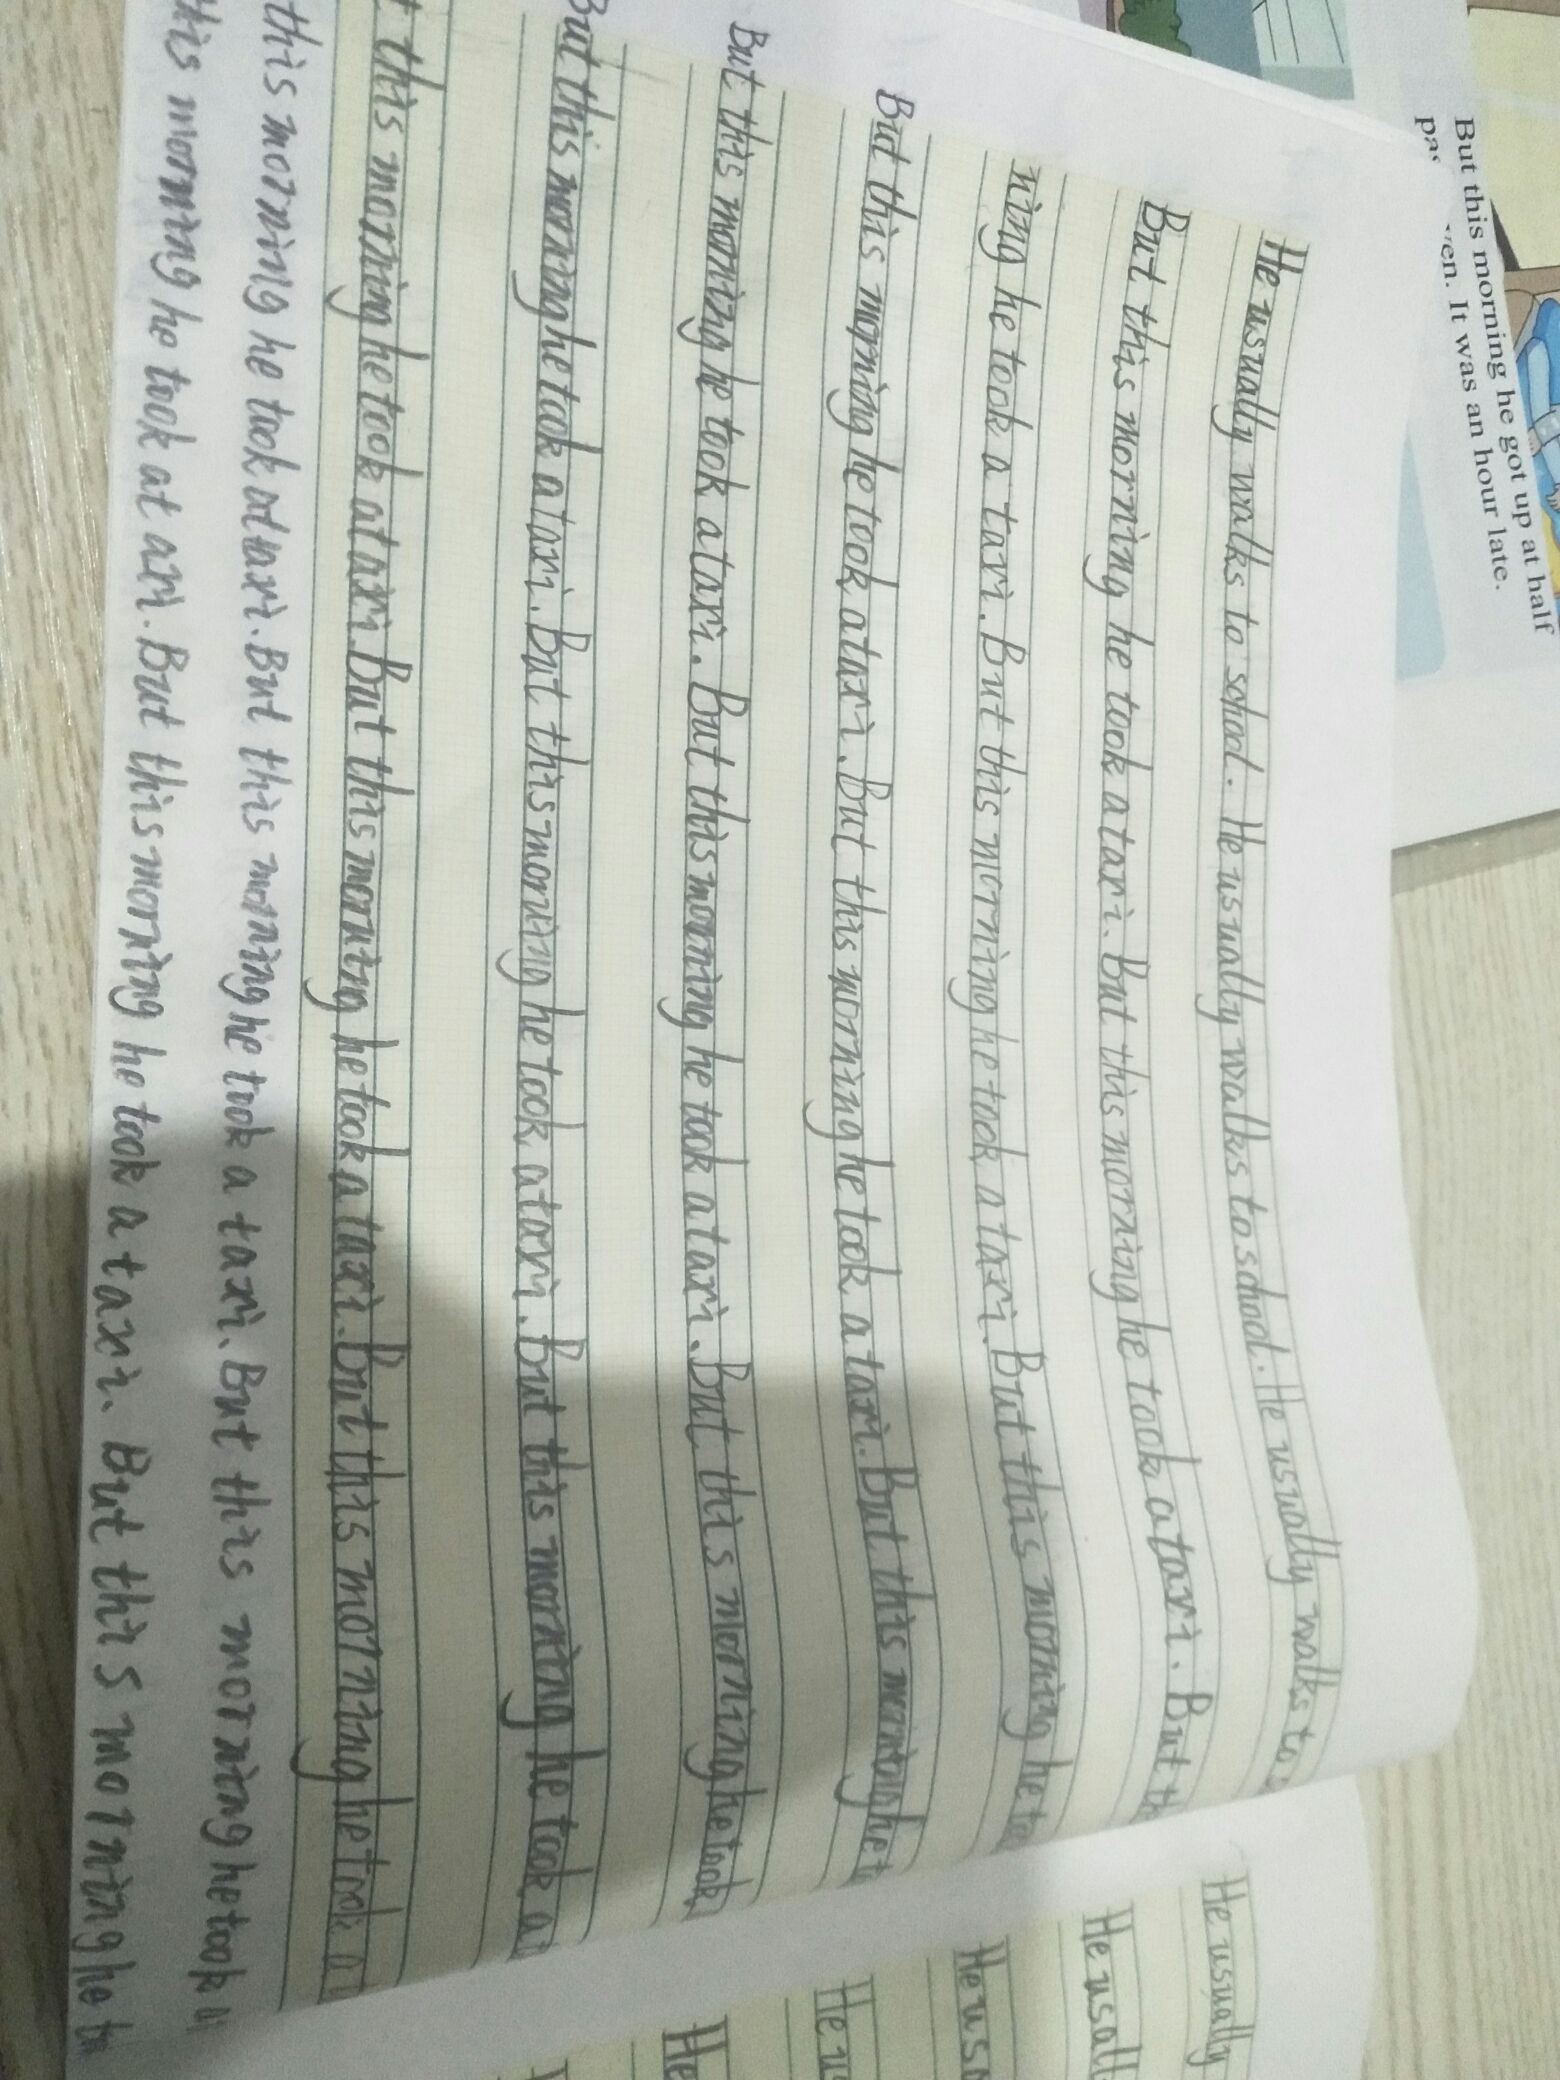 But this morning he got up at half
It was an hour late.
He usually walks to school. He usually walks to school. He usually walks to
But this morning he took a taxi. But this morning he took a taxi. But
ning he took a taxi. But this morning he took a taxi. But this morning he
But this morning he took a taxi. But this morning he took a taxi. But this morning he
But this morning he took a taxi. But this morning he took a taxi. But this morning he took
But this morning he took a taxi. But this morning he took a taxi. But this morning he took a
this morning he took a taxi. But this morning he took a taxi. But this morning he took a
this morning he took a taxi. But this morning he took a taxi. But this morning he took
this morning he took at axi. But this morning he took a taxi. But this morning he
He usually
He usuall
He usu
He u
He